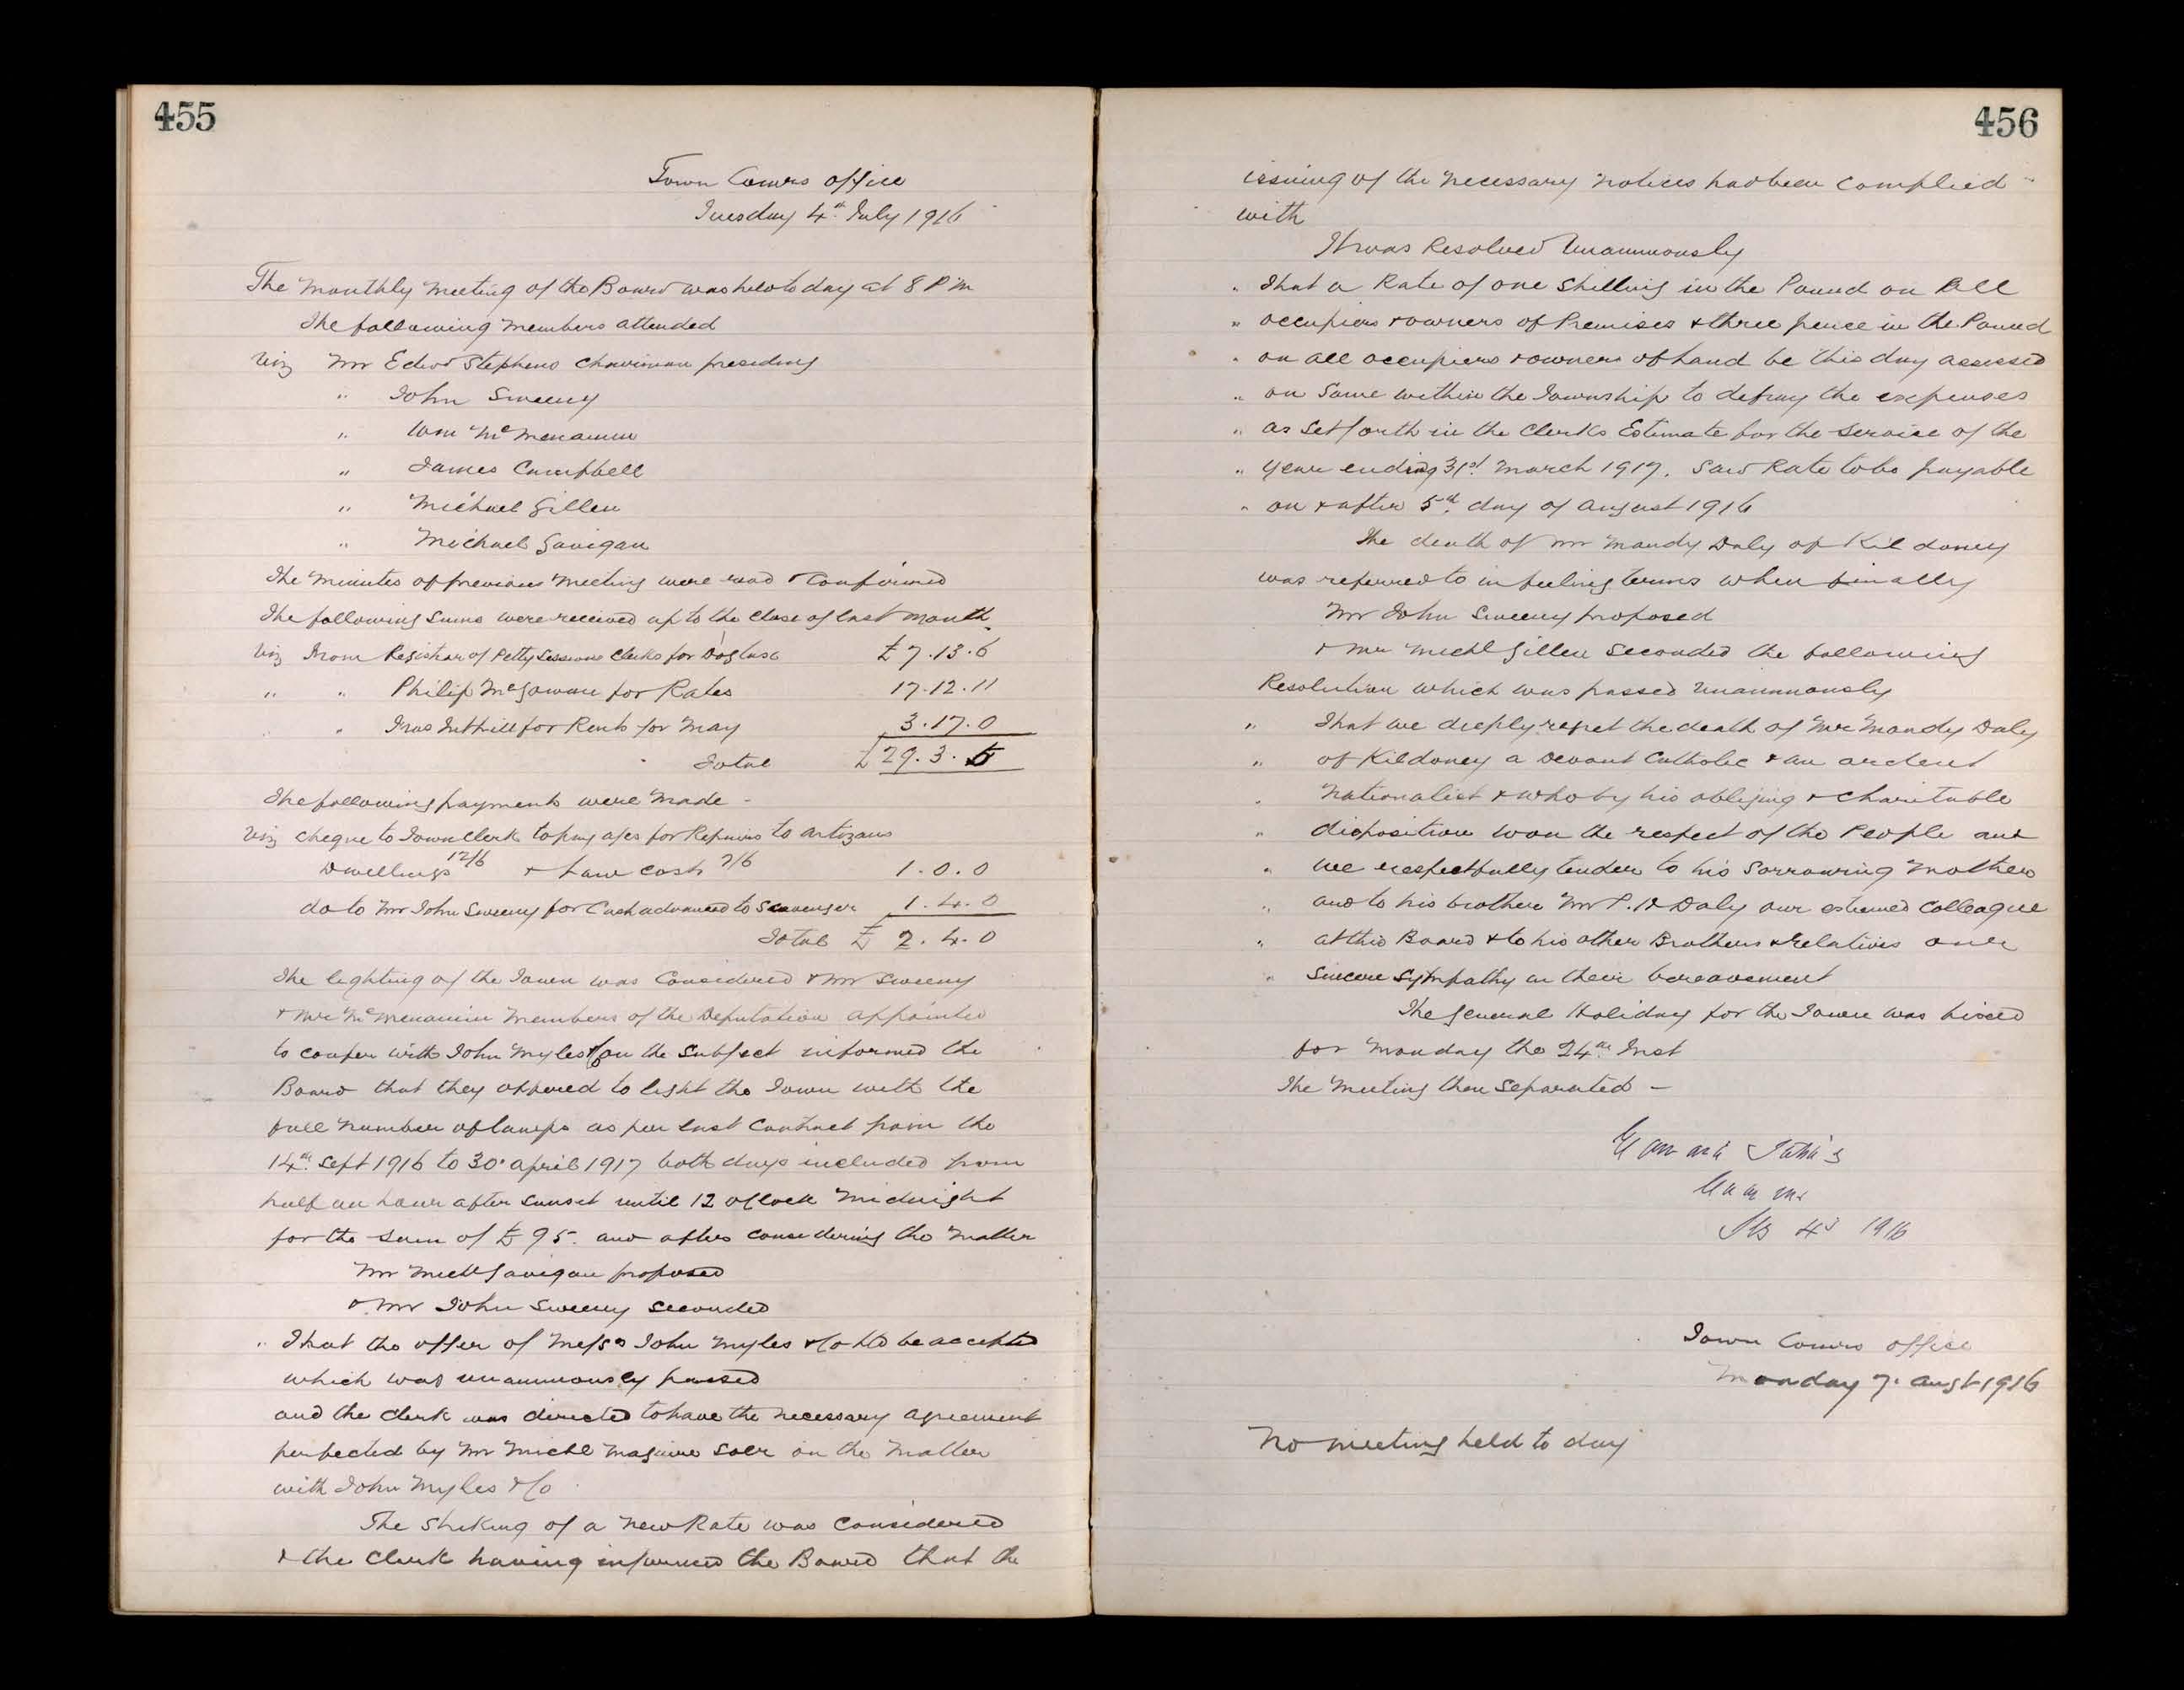 455
Town Comrs office
Tuesday 4th July 1916
The Monthly Meeting of the Board was held to day at 8 P m
The following Members attended
Viz Mr Edwd Stephens Chairman presiding
" John Sweeny
" Wm McMenamin
" James Campbell
" Michael Gillen
" Michael Gavigan
The Minutes of previous Meeting were read & Confirmed
The following Sums were received up to the Close of last Month
Viz From Registrar of Petty Sessions Clerks for Dog tax £7.13.6
" " Philip McGowan for Rates 17.12.11
" " for Rents for May 3.17.0
Total £29.3.5
The following payments were Made -
Viz Cheque to Town Clerk to pay a/cs for Repairs to Artizans
Dwellings 12/6 & Law Costs 7/6 1.0.0
do to Mr John Sweeny for Cash advanced to Scavenger 1.4.0
Total £2.4.0
The lighting of the Town was Considered & Mr Sweeny
& Mr McMenamin Members of the Deputation appointed
to confer with John Myles & Co on the Subject informed the
Board that they offered to light the Town with the
full Number of lamps as per last Contract from the
14th Sept 1916 to 30 april 1917 both days included from
half an hour after sunset until 12 oClock Midnight
for the sum of £95. and after considering the Matter
Mr Michl Gavigan proposed
& Mr John Sweeny seconded
" That the offer of Messrs John Myles & Co Ltd be accepted
which was unanimously passed
and the Clerk was directed to have the necessary agreement
perfected by Mr Michl Maguire Solr on the Matter
with John Myles & Co
The Striking of a New Rate was Considered
& the Clerk having informed the Board that the
456
issuing of the necessary notices had been Complied
with
It was Resolved Unanimously
" That a Rate of one Shilling in the Pound on All
" occupiers & owners of Premises & three pence in the Pound
" on all occupiers & owners of Land be this day assessed
" on Same within the Township to defray the expenses
" as Set forth in the Clerks Estimate for the Service of the
" Year ending 31st March 1917. Said Rate to be payable
" on & after 5th day of August 1916
The death of Mr Mandy Daly of Kildoney
was referred to in feeling terms when finally
Mr John Sweeny proposed
& Mr Michl Gillen Seconded the following
Resolution which was passed Unanimously
" That we deeply regret the death of Mr Mandy Daly
" of Kildoney a Devout Catholic & an ardent
" Nationalist & who by his obliging & Charitable
" disposition won the respect of the People and
" we respectfully tender to his Sorrowing Mother
" and to his brother Mr P. D Daly our esteemed Colleague
" at this Board & to his other Brothers & Relatives our
" Sincere Sympathy in their bereavement
The General Holiday for the Town was fixed
for Monday the 24th Inst
The Meeting then Separated -
1916
Town Comrs office
Monday 7. Augt 1916
No meeting held to day